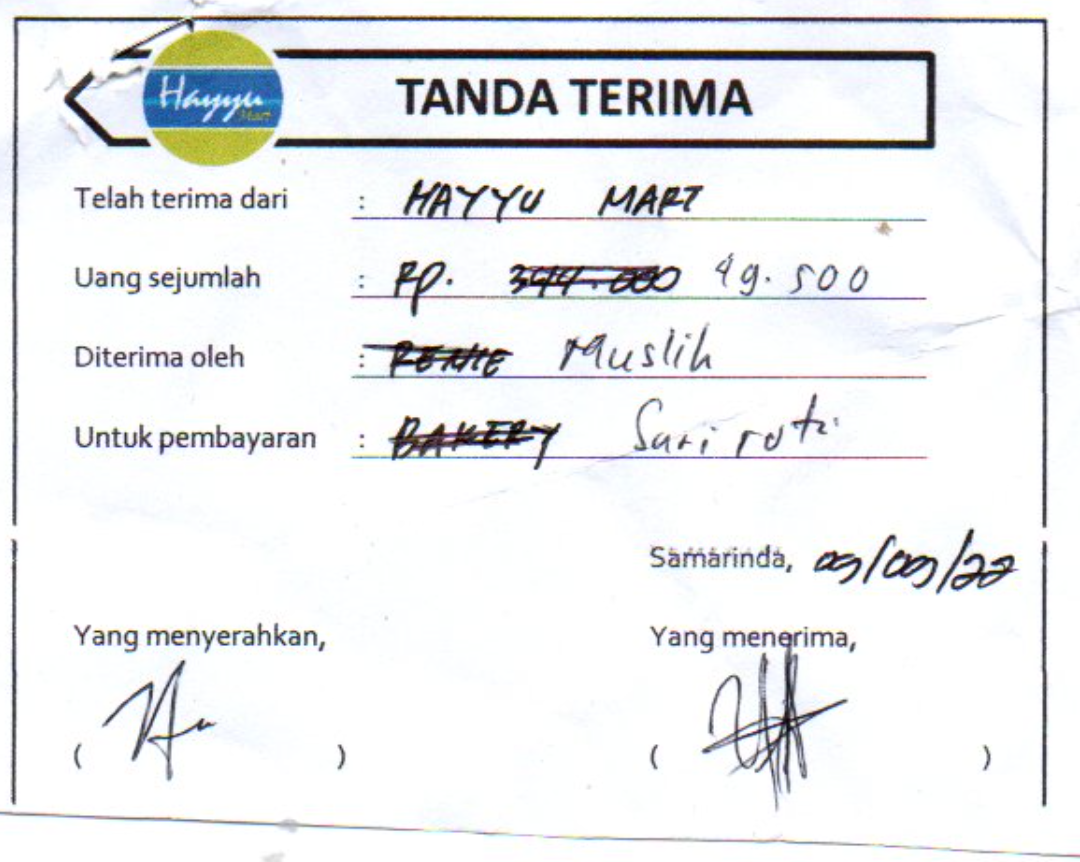 Hayyu
Mart
TANDA TERIMA
Telah terima dari : HAYYU MART
Uang sejumlah : Rp. 344.000 49.500
Diterima oleh : RENIE Muslih
Untuk pembayaran : BAKERY Sari roti
Samarinda, 09/09/22
Yang menyerahkan, Yang menerima,
( ) ( )